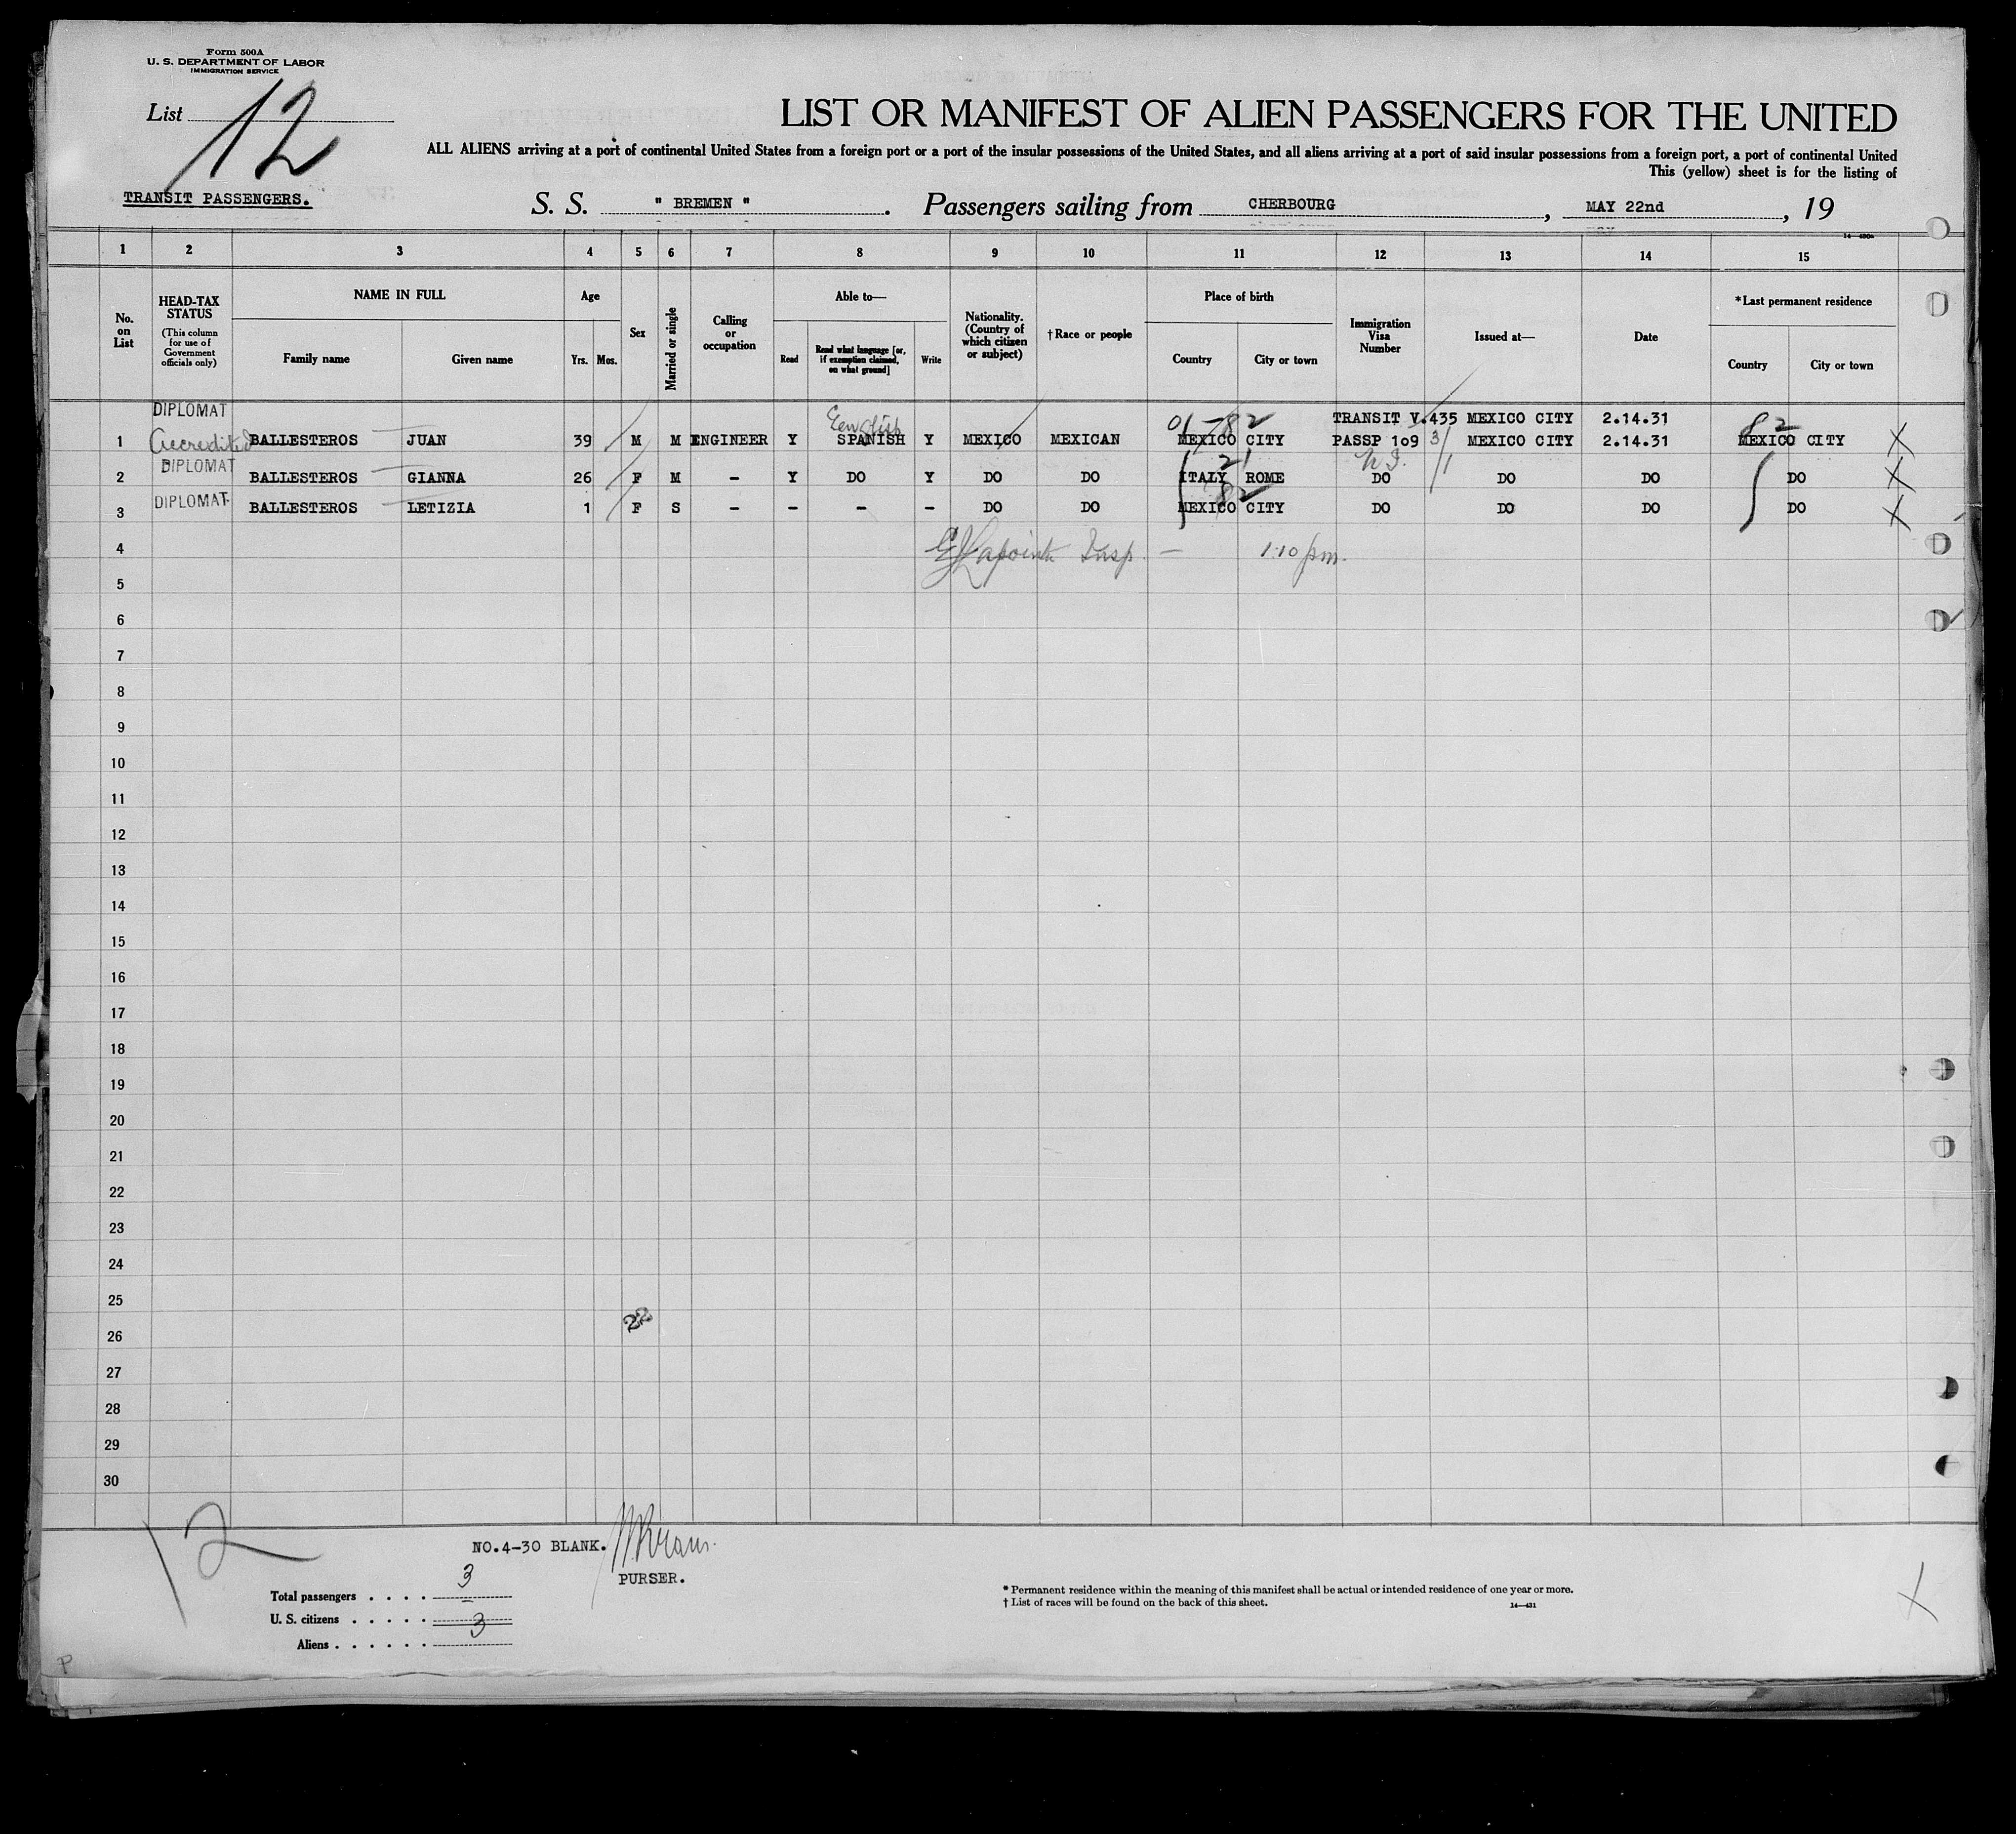 Form 500A
U. S. DEPARTMENT OF LABOR
IMMIGRATION SERVICE
List 12
LIST OR MANIFEST OF ALIEN PASSENGERS FOR THE UNITED
ALL ALIENS arriving at a port of continental United States from a foreign port or a port of the insular possessions of the United States, and all aliens arriving at a port of said insular possessions from a foreign port, a port of continental United
This (yellow) sheet is for the listing of
TRANSIT PASSENGERS.
S. S. " BREMEN ". Passengers sailing from CHERBOURG, MAY 22nd, 19
1 2 3 4 5 6 7 8 9 10 11 12 13 14 15
No. on List
HEAD-TAX STATUS
(This column for use of Government officials only)
NAME IN FULL
Family name Given name
Age
Yrs. Mos.
Sex
Married or single
Calling or occupation
Able to—
Read
Read what language [or, if exemption claimed, on what ground]
Write
Nationality. (Country of which citizen or subject)
†Race or people
Place of birth
Country City or town
Immigration Visa Number
Issued at—
Date
*Last permanent residence
Country City or town
DIPLOMAT English 01-82 TRANSIT V.435 MEXICO CITY 2.14.31 82
1 Accredited BALLESTEROS JUAN 39 M M ENGINEER Y SPANISH Y MEXICO MEXICAN MEXICO CITY PASSP 109 3/ MEXICO CITY 2.14.31 MEXICO CITY X
DIPLOMAT 21
2 BALLESTEROS GIANNA 26 F M - Y DO Y DO DO ITALY ROME DO DO DO DO X
DIPLOMAT 82
3 BALLESTEROS LETIZIA 1 F S - - - - DO DO MEXICO CITY DO DO DO DO X
4 Lapointe Insp. — 1.10 pm.
5
6
7
8
9
10
11
12
13
14
15
16
17
18
19
20
21
22
23
24
25
22
26
27
28
29
30
12
NO.4-30 BLANK.
PURSER.
Total passengers . . . . 3
U. S. citizens . . . . . –
Aliens . . . . . . 3
* Permanent residence within the meaning of this manifest shall be actual or intended residence of one year or more.
† List of races will be found on the back of this sheet.
14—431
X
P